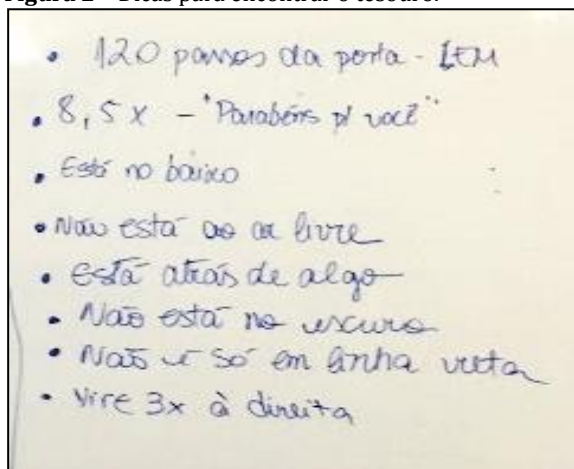 Figura 2 – Dicas para encontrar o tesouro.
• 120 passos da porta - LEM
• 8,5 x - "Parabéns p/ você"
• Está no baixo
• Não está ao ar livre
• Está atrás de algo
• Não está no escuro
• Não é só em linha reta
• Vire 3x à direita